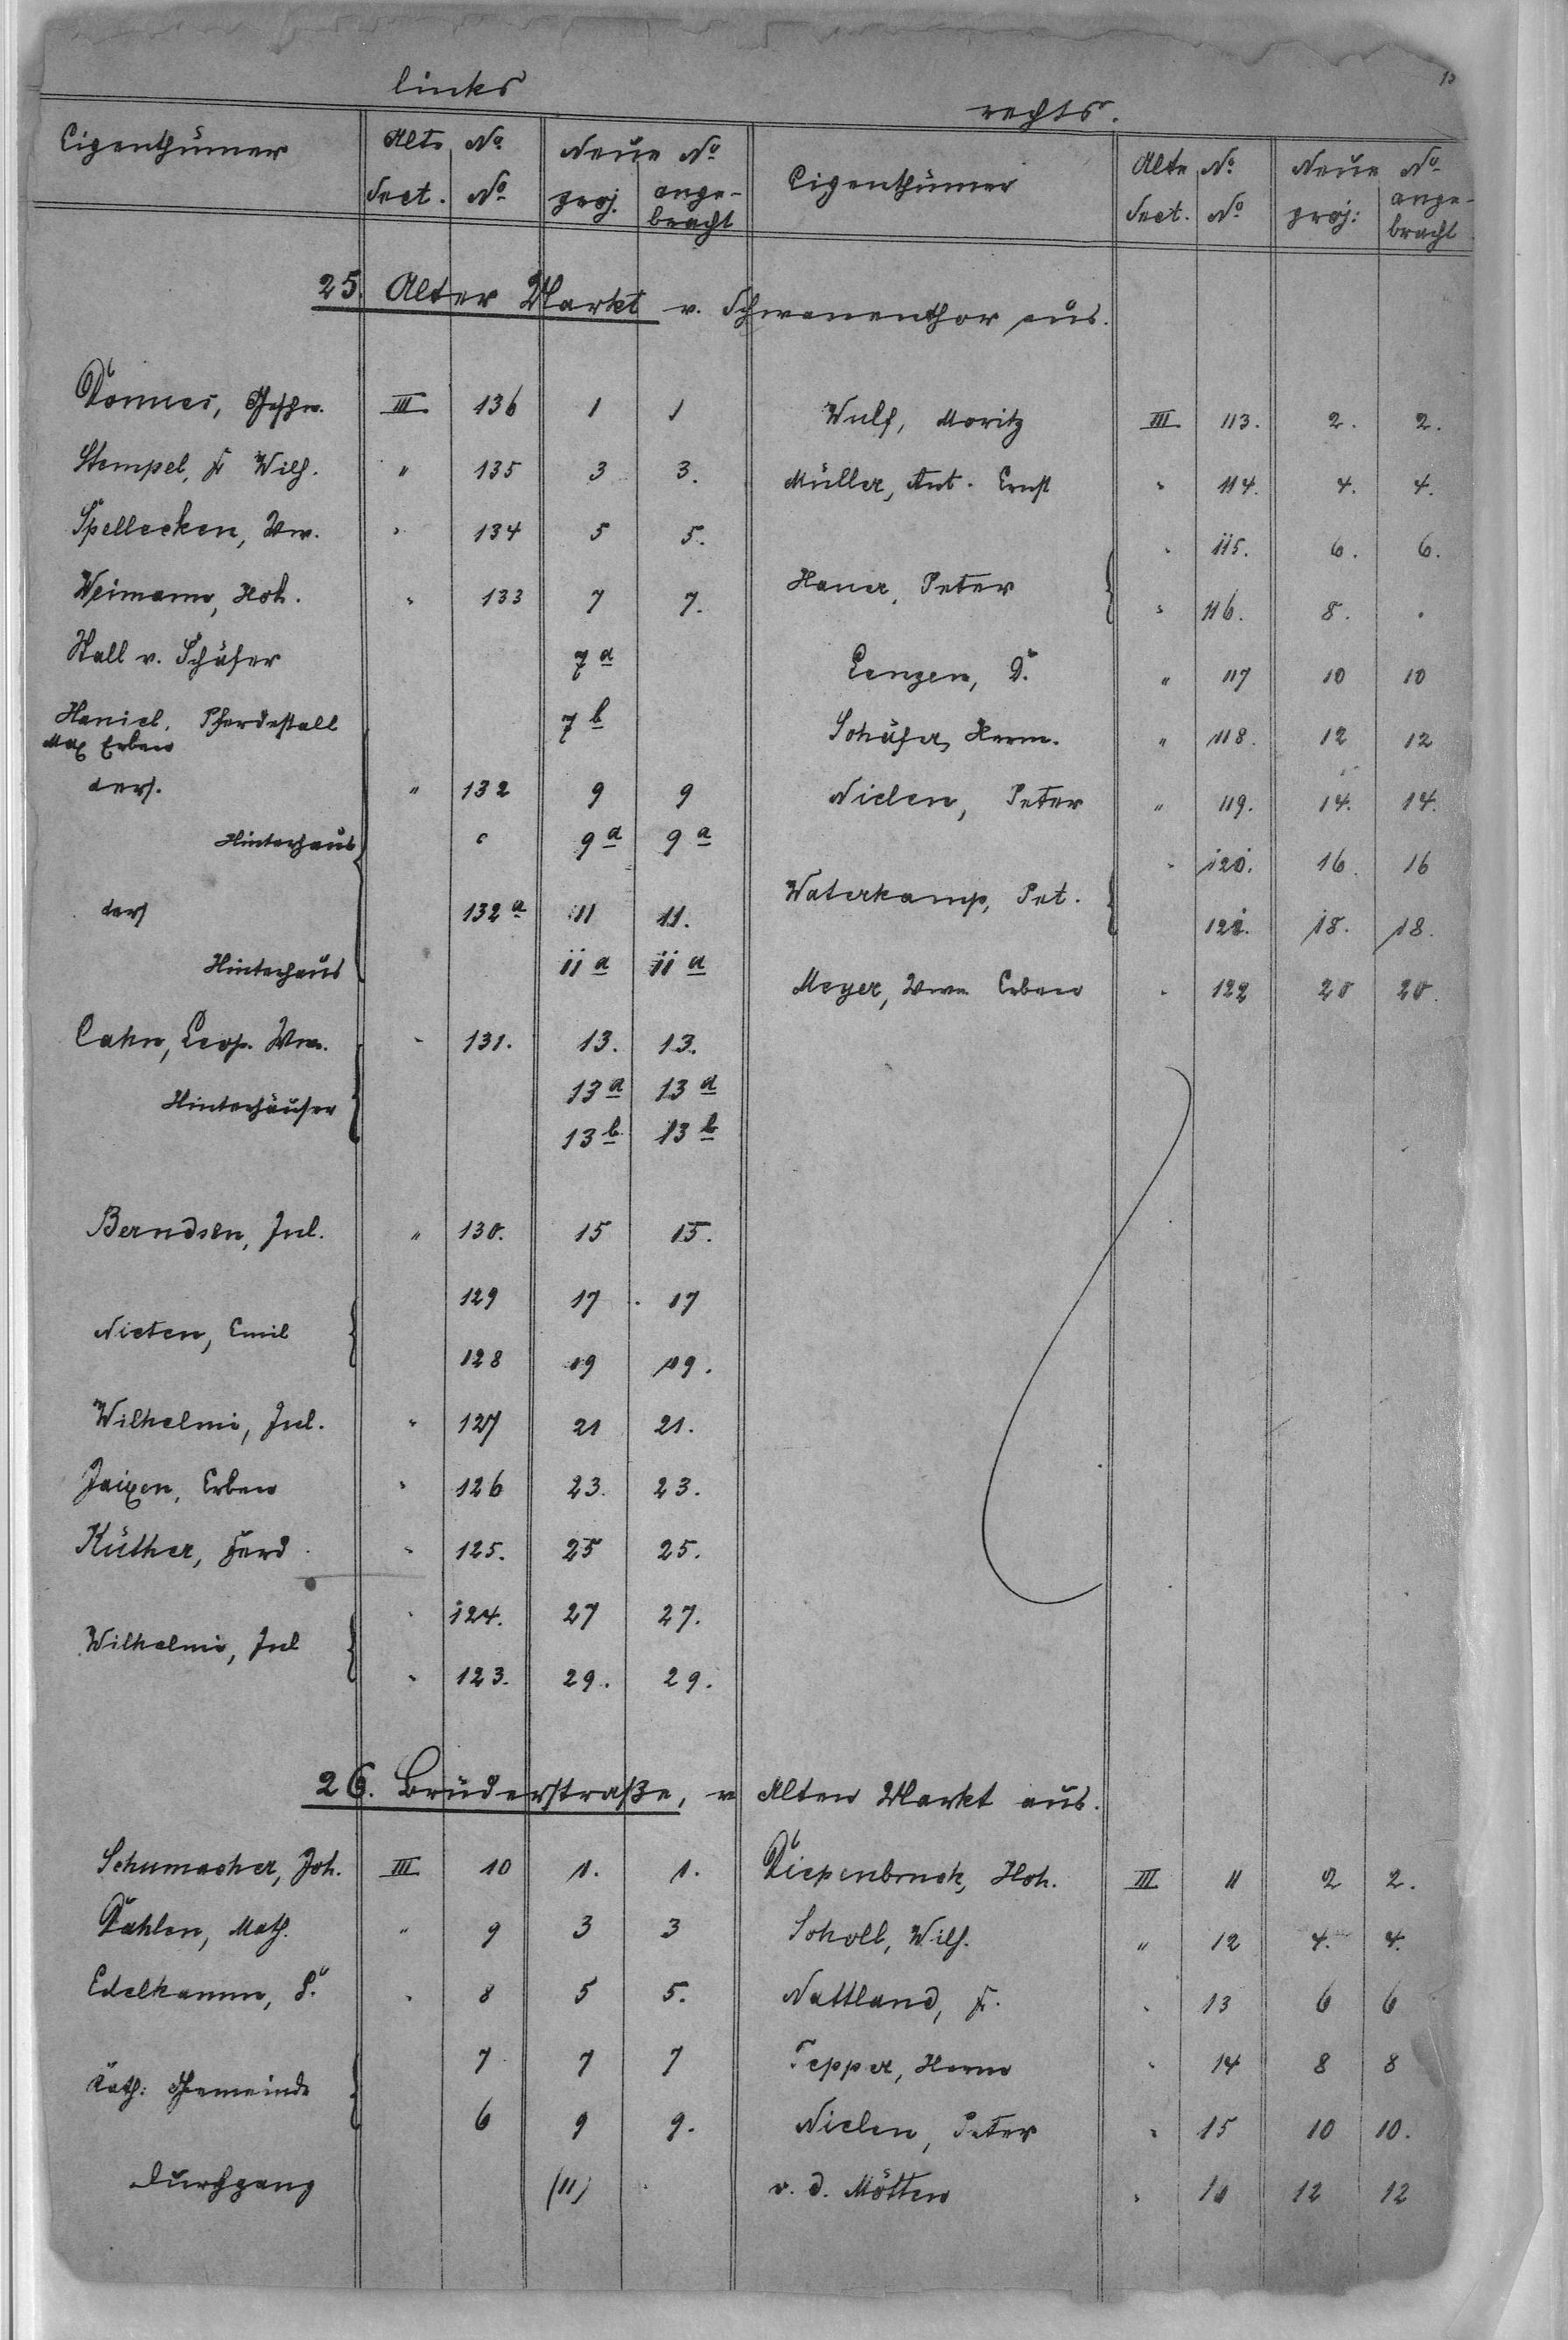 links
rechts.
Eigenthümer Alte No. Neue No. Eigenthümer Alte No. Neue No.
Sect. No. proj. ange- Sect. No. proj: ange-
bracht bracht
25. Alter Markt v. Schwanenthor aus.
Dönnes, Geschw. III 136 1 1 Wulf, Moritz III 113. 2. 2.
Stempel, Fr Wilh. " 135 3 3. Müller, Ant. Ernst " 114. 4. 4.
Spellecken, Ww. " 134 5 5. " 115. 6. 6.
Hauer, Peter
Weimann, Hch. " 133 7 7. " 116. 8. .
Stall v. Schäfer 7a Lenzen, D. " 117 10 10
Haniel, Pferdestall 7b Schäfer, Herm. " 118. 12 12
Max Erben
ders. " 132 9 9 Nielen, Peter " 119. 14. 14.
Hinterhaus " 9a 9a " 120. 16. 16
Waterkamp, Pet.
ders 132a 11 11. 121. 18. 18.
Hinterhaus 11a 11a Meyer, Wwe. Erben " 122 20 20.
Cahn, Leop. Wwe. " 131. 13. 13.
13a 13a
Hinterhäuser
13b 13b
Berndsen, Jul. " 130. 15 15.
129 17 17
Nieten, Emil
128 19 19.
Wilhelmi, Jul. " 127 21 21.
Jaixen, Erben " 126 23. 23.
Küther, Ferd. " 125. 25 25.
" 124. 27 27.
Wilhelmi, Jul
" 123. 29. 29.
26. Brüderstraße, v Alten Markt aus.
Schumacher, Joh. III 10 1. 1. Diepenbruck, Hch. III 11 2 2.
Dahlen, Math. " 9 3 3 Scholl, Wilh. " 12 4. 4.
Edelkamm, " 8 5 5. Nattland, Fr. " 13 6 6
7 7 7 Tepper, Herm " 14 8 8
Kath: Gemeinde
6 9 9. Nielen, Peter " 15 10 10.
Durchgang (11) v. d. Mötten " 12 12